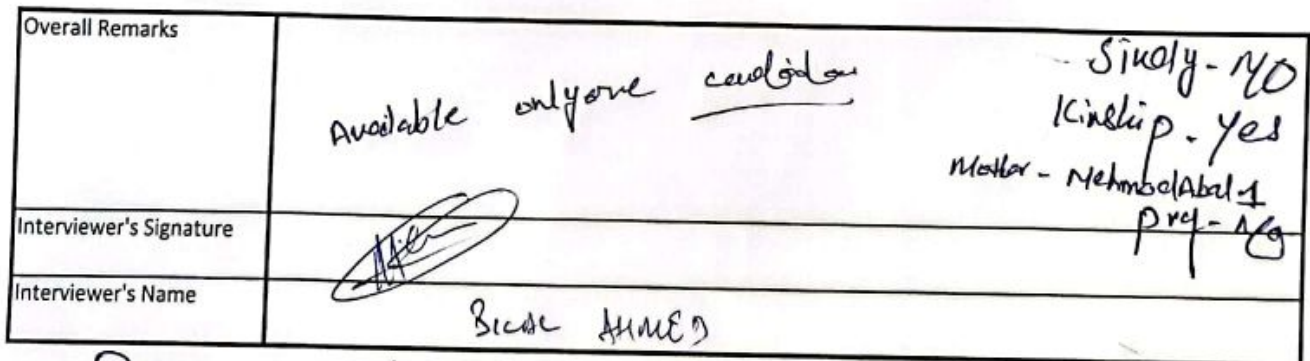 Overall Remarks
Available only one
Sindy - NO
Kinship - Yes
Mother -
Interviewer's Signature
Interviewer's Name
BILAL AHMED